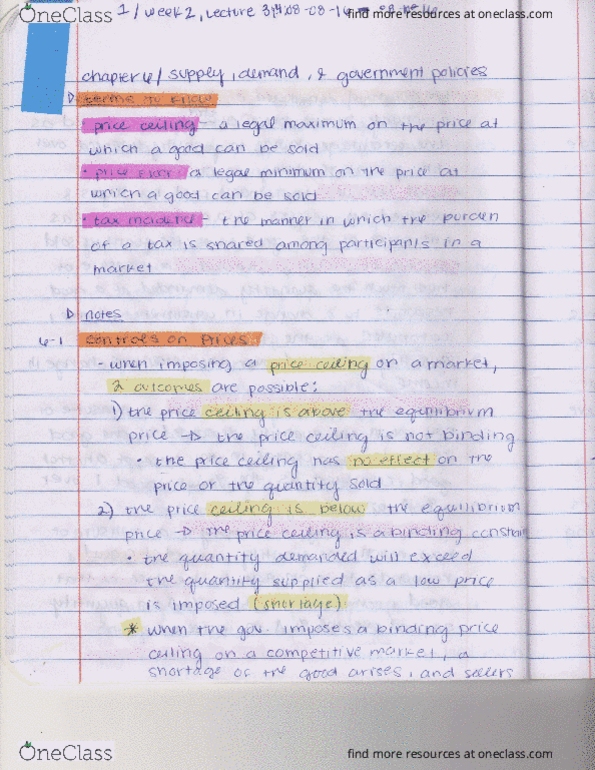 OneClass
find more resources at oneclass.com
1 / week 2, Lecture
chapter 6/ supply, demand, & government policies
terms to know
• price ceiling - a legal maximum on the price at
which a good can be sold
• price floor - a legal minimum on the price at
which a good can be sold
• tax incidence - the manner in which the burden
of a tax is shared among participants in a
market
notes
6-1 controls on Prices
- when imposing a price ceiling on a market,
2 outcomes are possible:
1) the price ceiling is above the equilibrium
price → the price ceiling is not binding
• the price ceiling has no effect on the
price or the quantity sold
2) the price ceiling is below the equilibrium
price → the price ceiling is a binding constrai
• the quantity demanded will exceed
the quantity supplied as a low price
is imposed (shortage)
* when the gov. imposes a binding price
ceiling on a competitive market, a
shortage of the good arises, and sellers
OneClass
find more resources at oneclass.com